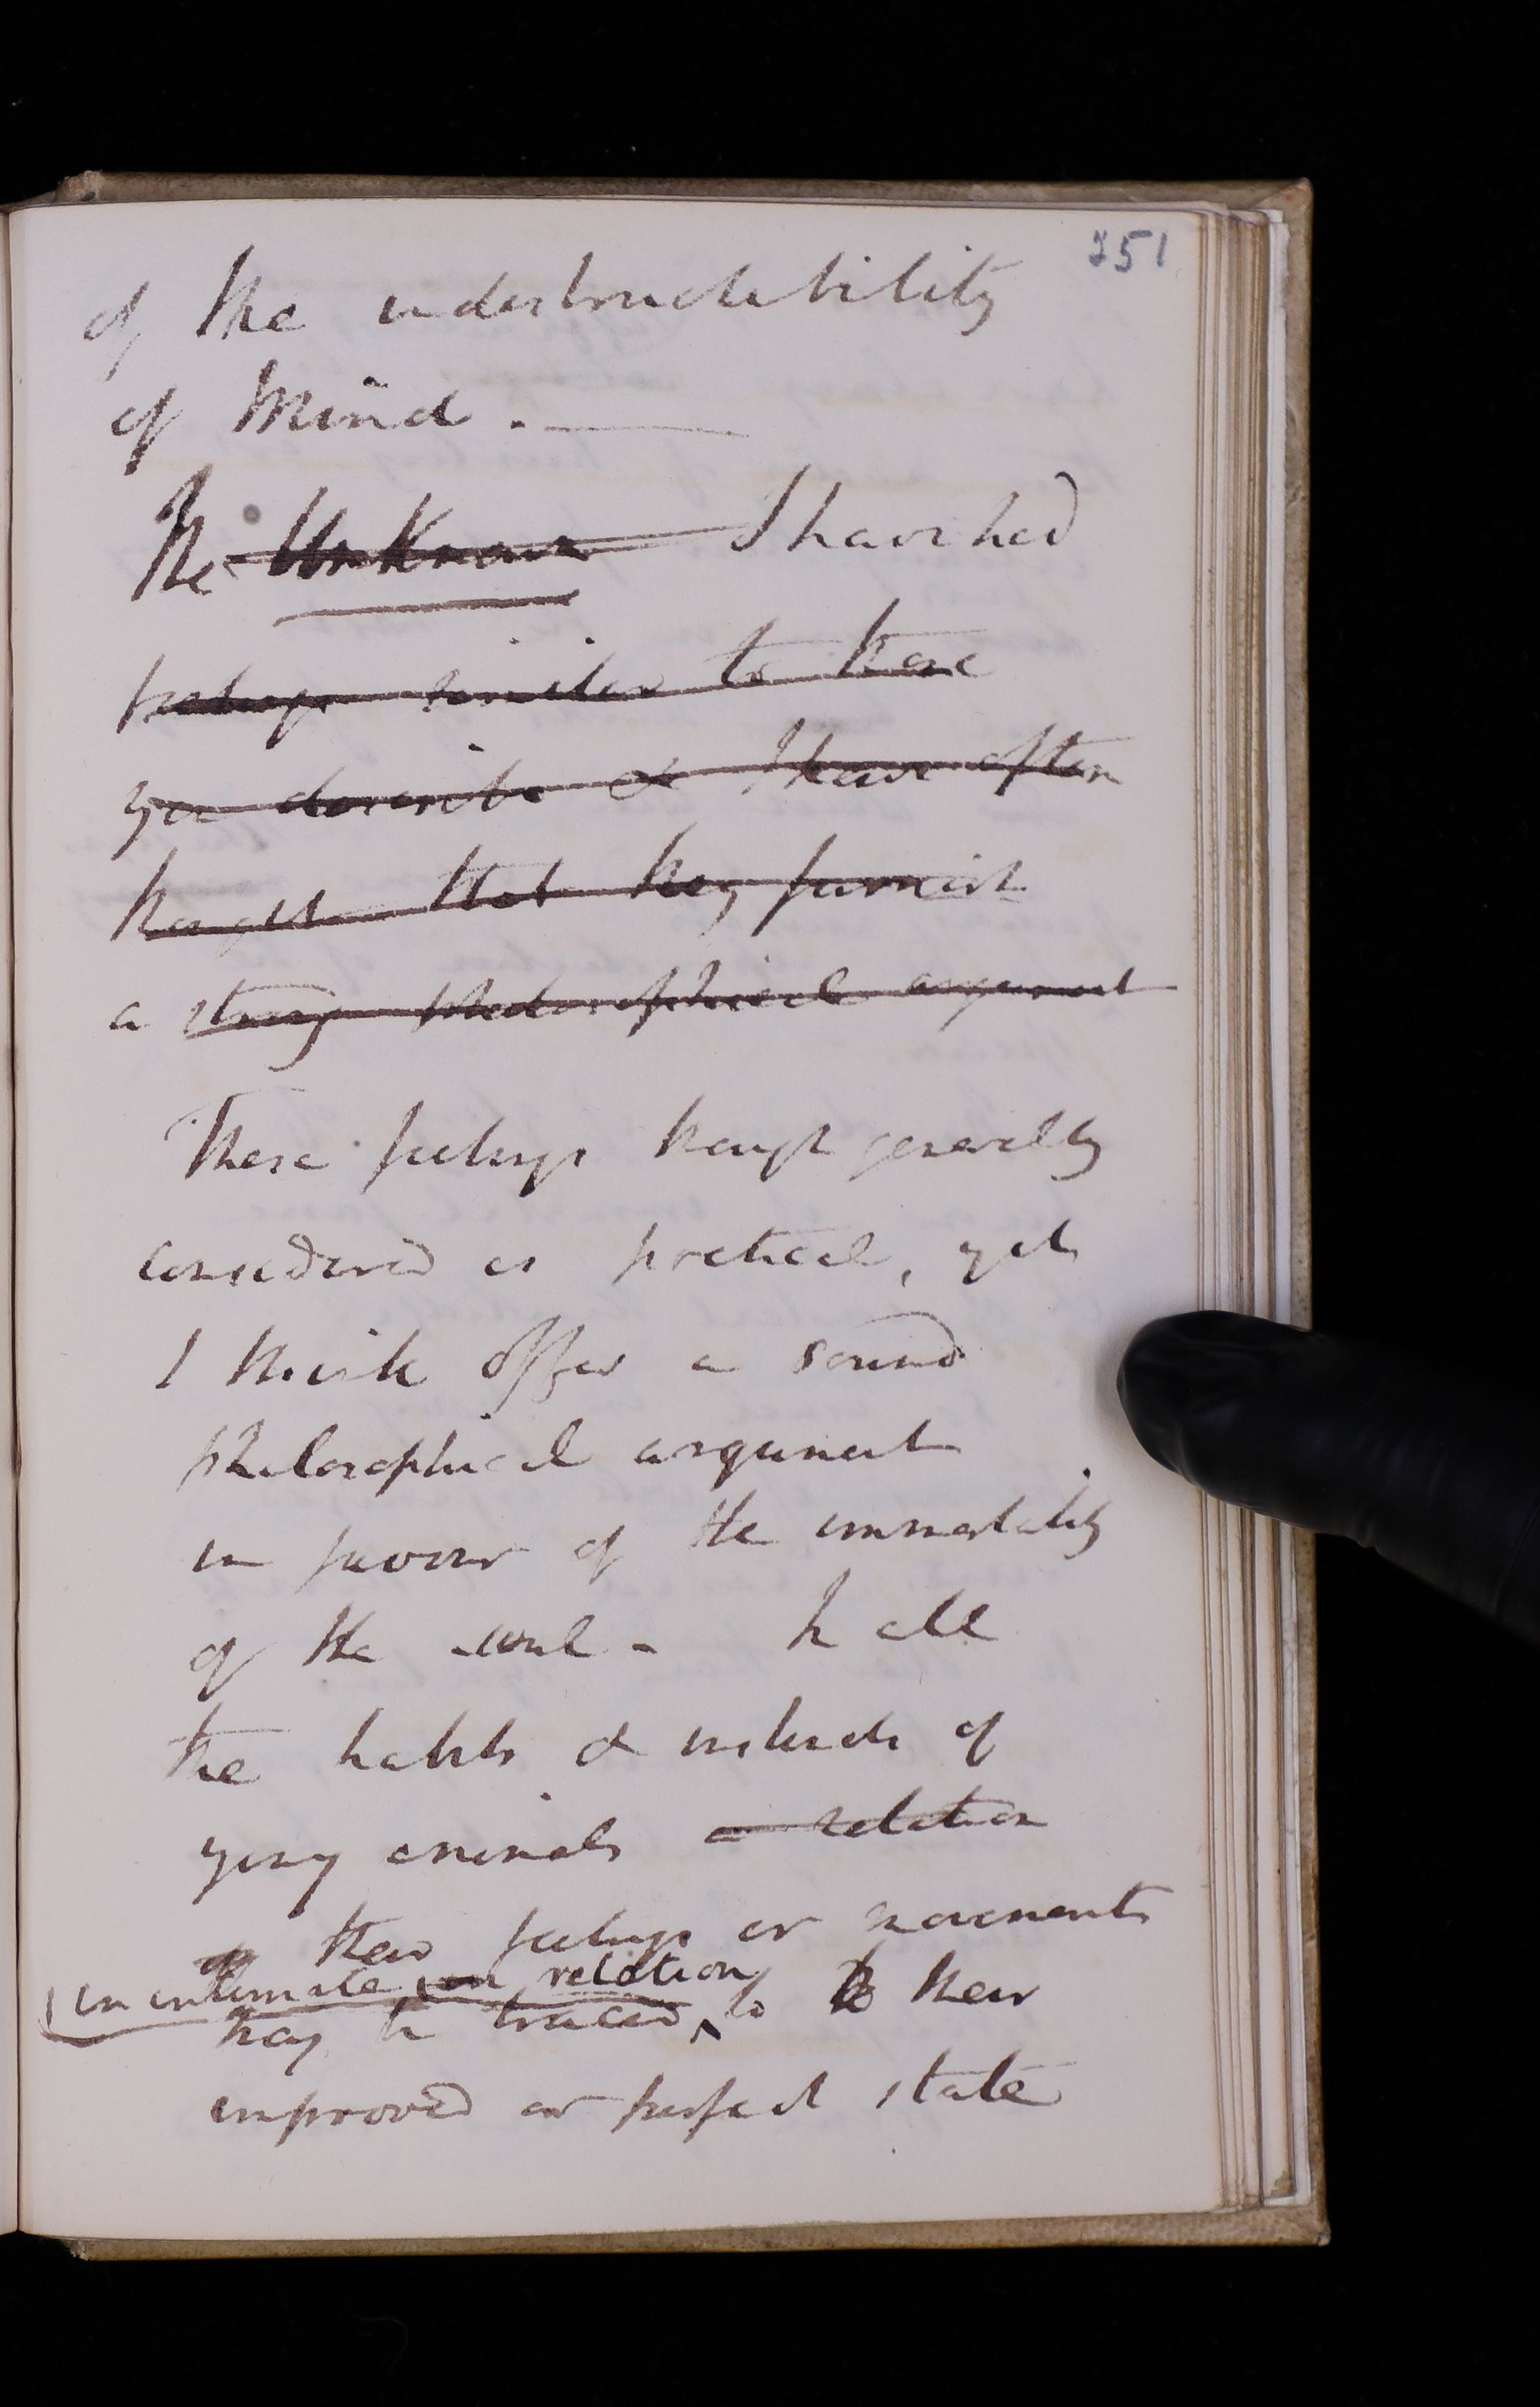 251
of the indestructibility
of Mind. —
The Unknown I have had
perhaps similar to those
you describe & I have often
thought that they furnish
a strong philosophical argument
These feelings though generally
considered as poetical, yet
I think offer a sound
philosophical argument
in favour of the immortality
of the soul - In all
the habits & instincts of
young animals a relation
of their feelings or movements
(in intimate relation
may be traced ^ to their
improved or perfect state